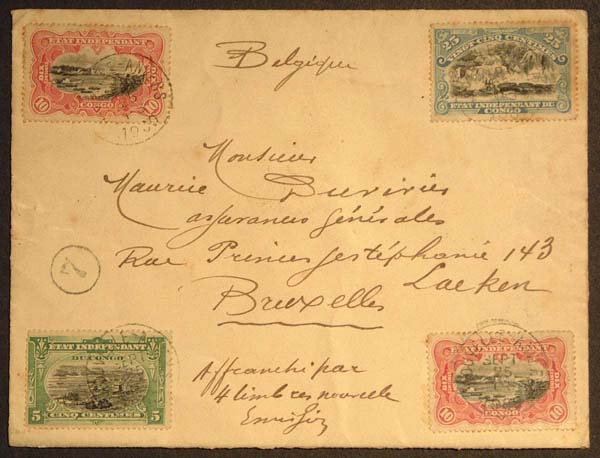 ETAT INDEPENDANT
DIX CENTIMES
10 10
CONGO
1900
Belgique
25 25
VINGT CINQ CENTIMES
ETAT INDEPENDANT DE
CONGO
Monsieur
Maurice
assurances générales
Rue Princesse Stéphanie 143
Laeken
Bruxelles
7
ETAT INDEPENDANT
DU CONGO
5 5
CINQ CENTIMES
Affranchi par
4 timbres nouvelle
Emission
ETAT INDEPENDANT
DIX
10 10
CONGO
SEPT